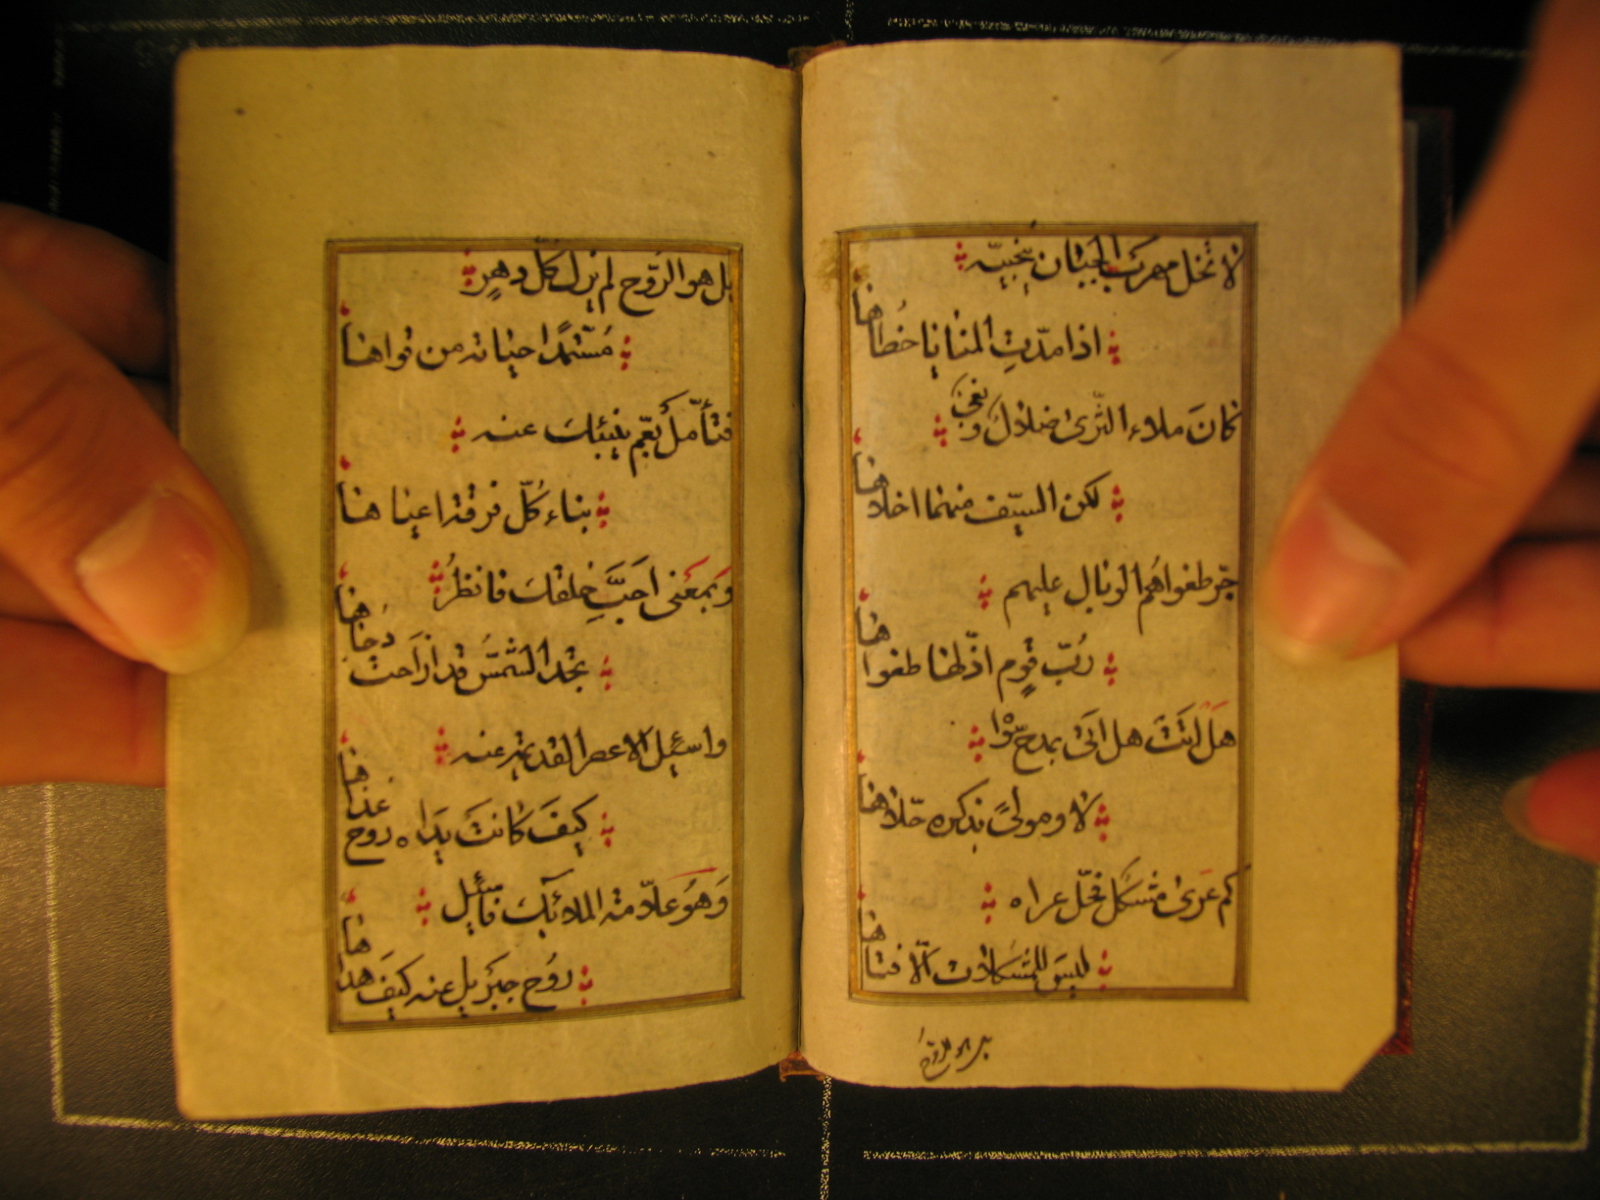 لا تخل مهرب الجبان يخيّبه
اذا مدّتِ المنايا خُطاها
كانَ ملاء الثّرى ضلال وبغى
لكن السّيف منهما اخلاها
طغوا هُم الوبال عليهم
رُبّ قومٍ اذلّها طغواها
هَل اتَت هل اتى بمدح سِوا
لا ومولىً بذكره حلاها
كم عَرى مشكل فحلّ عراه
ليسَ للمشكلات الّا فتاها
بل هو الروح
بل هو الرّوح لم يزل كلّ دهرٍ
مُستمدّا حياته من قواها
فتأمّل بعَمّ ينبئك عنه
بناء كُلّ فرقة اعياها
وَبمعَنى احَبَّ خلقك فانظرُ
تجد الشمسَ قد ازاحَت دُجاها
واسئل الاعصر القديمة عنه
كيفَ كانتَ يدَاه روح غذاها
وَهوَ علاّمة الملائك فاسئل
روُح جبَريل عنه كيفَ هداها